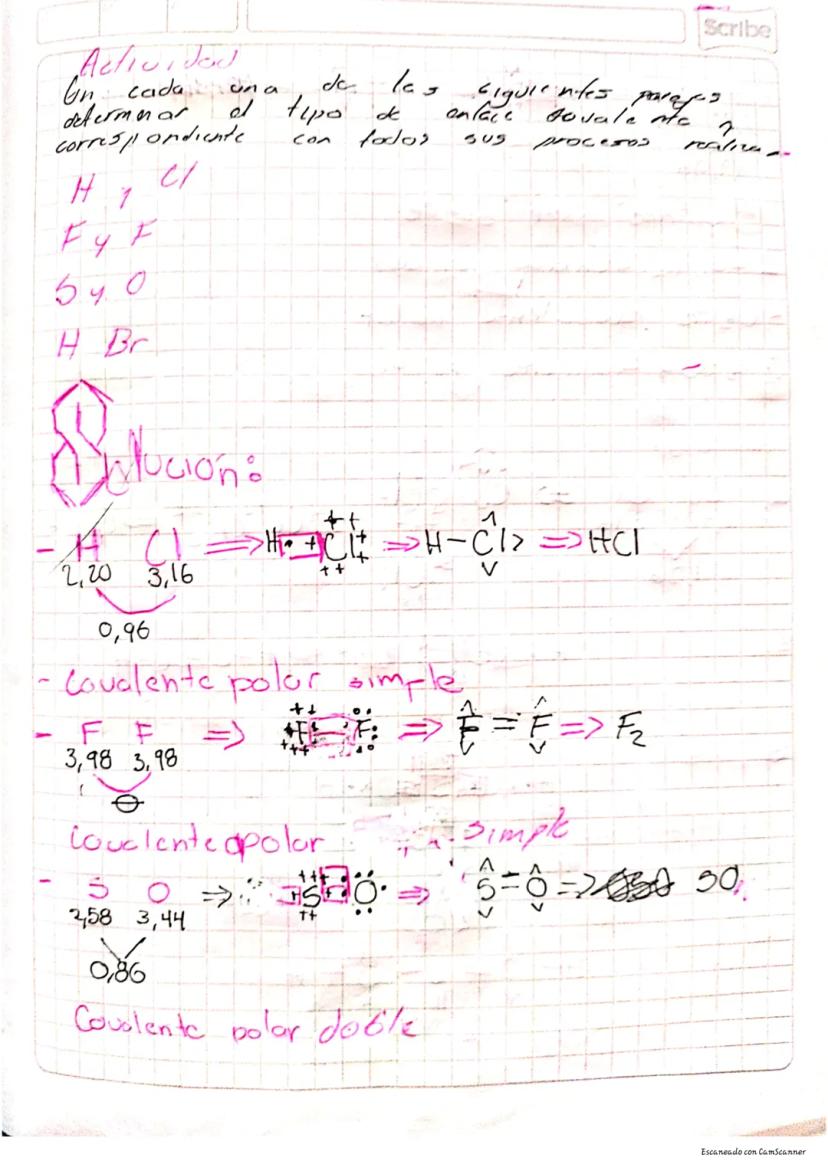 Scribe
Actividad
En cada una de los siguientes parejas
determinar el tipo de enlace covalente y
correspondiente con todos sus procesos realiza
H y Cl
F y F
S y O
H Br
Solución:
- H Cl ⇒ H • + Cl ⇒ H - Cl ⇒ HCl
2,20 3,16
0,96
- Covalente polar simple
- F F ⇒ F F ⇒ F = F ⇒ F2
3,98 3,98
0
Covalente apolar simple
- S O ⇒ S O ⇒ S = O ⇒ SO
2,58 3,44
0,86
Covalente polar doble
Escaneado con CamScanner